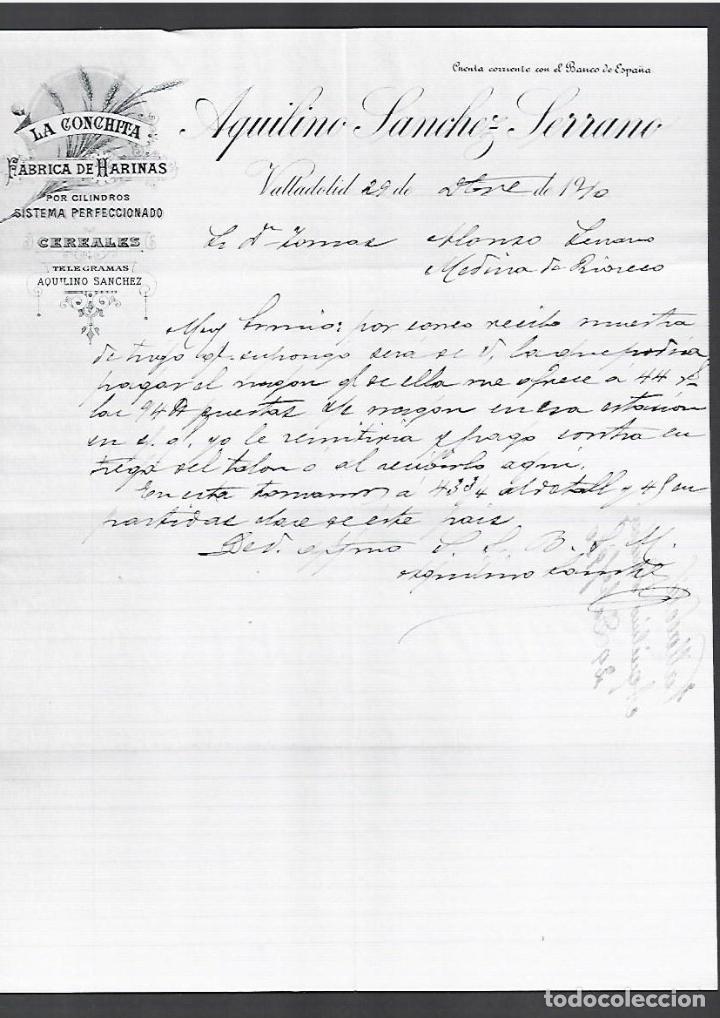 Cuenta corriente con el Banco de España
LA CONCHITA
FÁBRICA DE HARINAS
POR CILINDROS
SISTEMA PERFECCIONADO
CEREALES
TELEGRAMAS
AQUILINO SANCHEZ
Aquilino Sanchez Serrano
Valladolid 29 de de 1910
Sr Dn Tomas Alonso
Medina de Rioseco
Muy Sr mio: por correo recibo muestra
de trigo qe supongo sera de V. la que podria
pagar el wagon qe de ella me ofrece á 44
las 94 puestas Se wagon en esa estacion
en s. a. yo le remitiria pago contra en
trega del talon ó al recibirlo aqui.
En esta tomamos á 43 3/4 al detall y 45 en
partidas clase de este pais
De V. affmo S. S. Q. B. S. M.
Aquilino Sanchez
todocoleccion